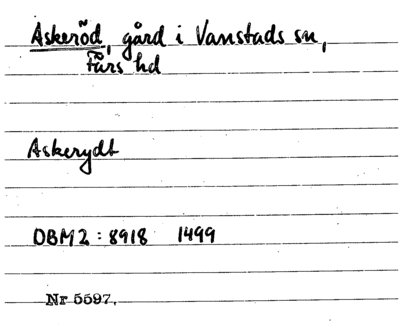 Askeröd, gård i Vanstads sn,
Färs hd
Askerydt
DBM2: 8918 1499
Nr 5597.